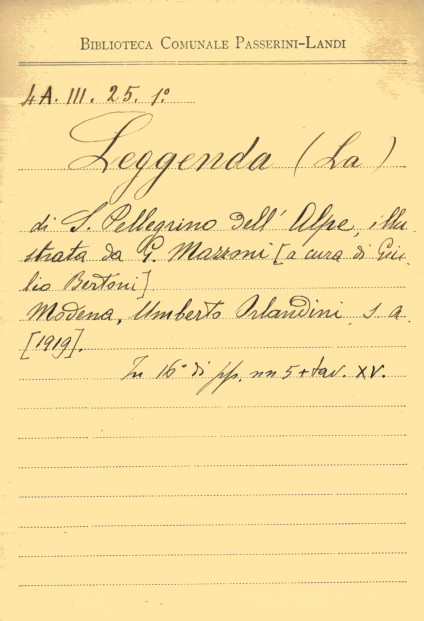 BIBLIOTECA COMUNALE PASSERINI-LANDI
4A. III. 25. 1º
Leggenda (La)
di S. Pellegrino dell'Alpe, illu-
strata da G. Mazzoni [a cura di Giu-
lio Bertoni]
Modena, Umberto Orlandini, s. a.
[1919].
In 16° di pp. nn 5 + tav. XV.